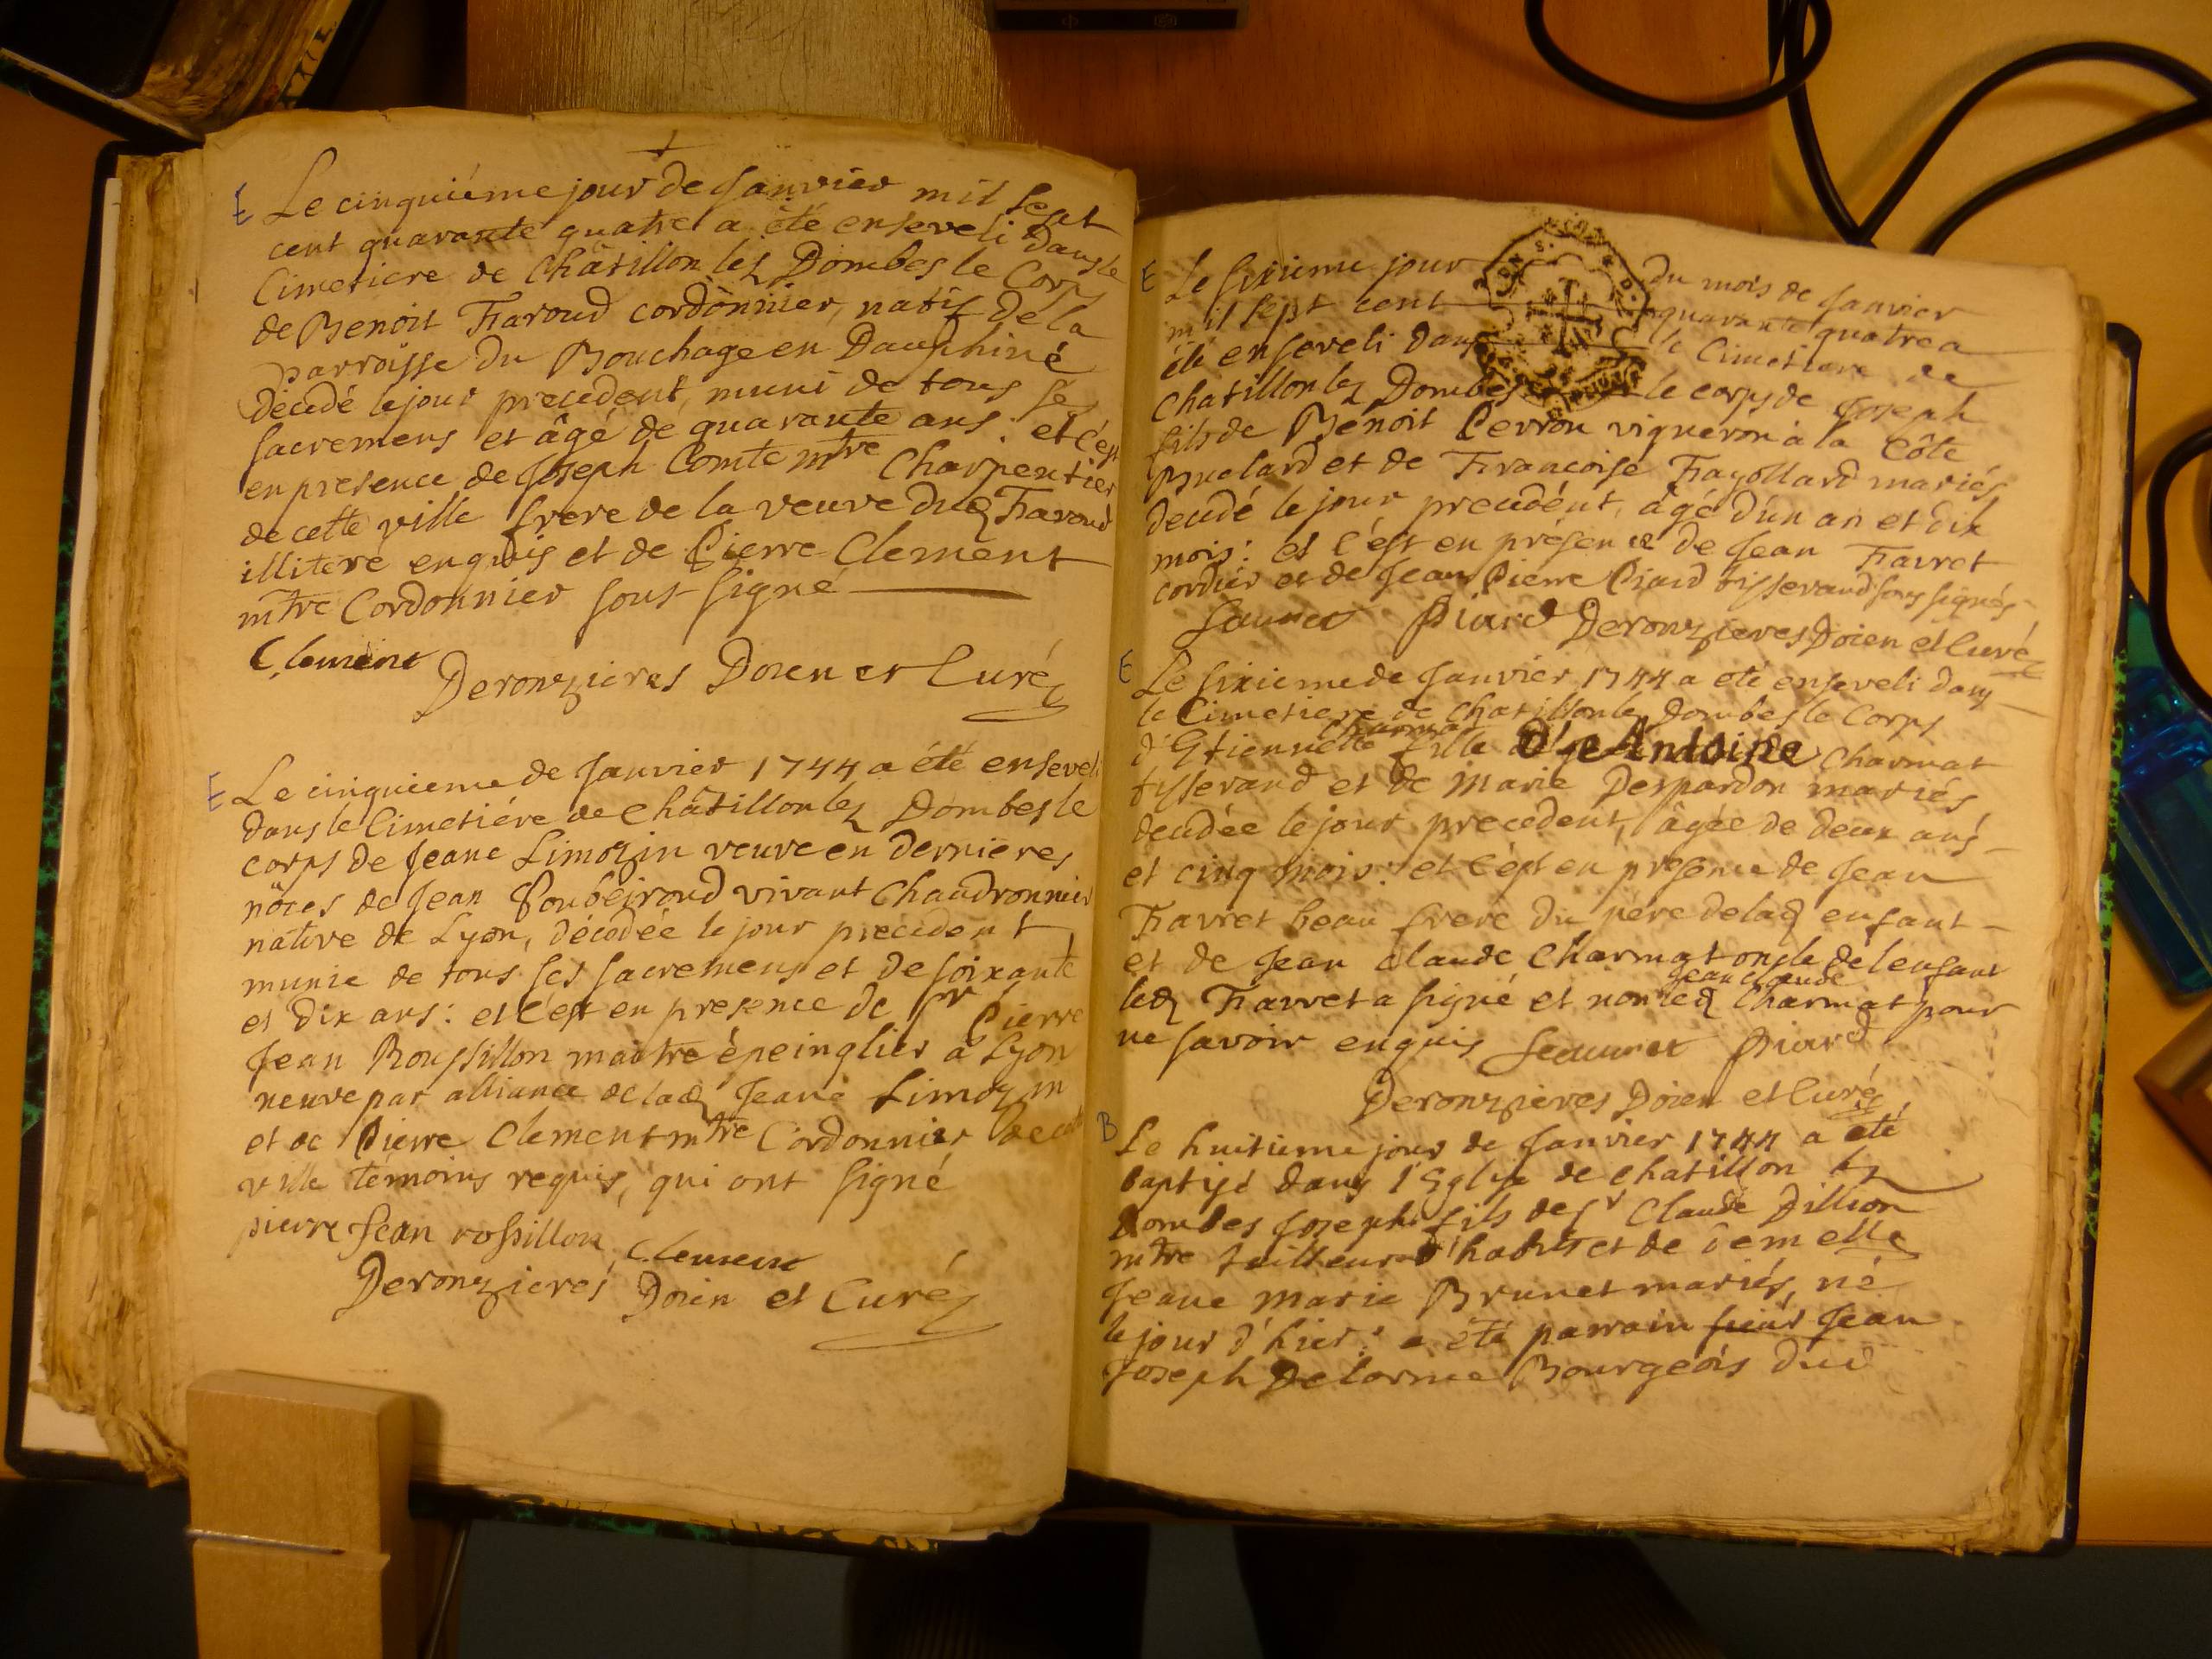 E Le cinquiéme jour de Janvier mil sept
cent quarante quatre a êté enseveli dans le
Cimetiere de Châtillon lez Dombes le Corps
de Benoit Faroud cordonnier, natif de la
parroisse du Bouchage en Dauphiné
decedé le jour precedent, muni de tous se
sacremens et âgé de quarante ans. et c'est
en presence de Joseph Comte mtre Charpentier
de cette ville frere de la veuve dud Faroud
illiteré enquis et de Pierre Clement
mtre Cordonnier sous signé
Clement Deronzieres Doien et Curé
E Le cinquieme de Janvier 1744 a été enseveli
dans le Cimetiére de Châtillon lez Dombes le
corps de Jeane Limozin veuve en dernieres
nôces de Jean vivant Chaudronnier
native de Lyon, décédée le jour precedent
munie de tous ses sacremens et de soixante
et dix ans: et c'est en presence de sr Pierre
Jean Roussillon maitre épeinglier a Lyon
neuve par alliance de lad Jeane Limozin
et de Pierre Clement mtre Cordonnier de cette
ville témoins requis, qui ont signé
pierre Jean rossillon Clement
Deronzieres Doien et Curé
E Le sixieme jour du mois de Janvier
mil sept cent quarante quatre a
été enseveli dans le Cimetiere de
Chatillon lez Dombes le corps de Joseph
fils de Bénoit Perron vigneron à la Côte
Buelard et de Francoise Fayollard mariés,
decedé le jour precedent, âgé d'un an et dix
mois: et c'est en présence de Jean Favret
cordier et de Jean Pierre Piard tisserand sous signés
Piard Deronzieres Doien et Curé
E Le sixieme de Janvier 1744 a eté enseveli dans
le Cimetiere de Chatillon lez Dombes le Corps
Charmat
d'Etiennette fille d'Antoine Charmat
tisserand et de Marie Despardon mariés
decedée le jour precedent, âgée de deux ans
et cinq mois: et c'est en presence de Jean
Favret beau frere du père de lad enfant
et de Jean Claude Charmat oncle de l'enfant
Jean Claude
led Favret a signé et non led Charmat pour
ne savoir enquis Piard
Deronzieres Doien et Curé
B Le huitieme jour de Janvier 1744 a eté
baptisé dans l'Eglise de Chatillon lez
Dombes Joseph fils de sr Claude Dillion
mtre tailleur d'habits et de demelle
Jeane Marie Brunet mariés, né
le jour d'hier: a été parrain sieur Jean
Joseph Delorme Bourgeois dud